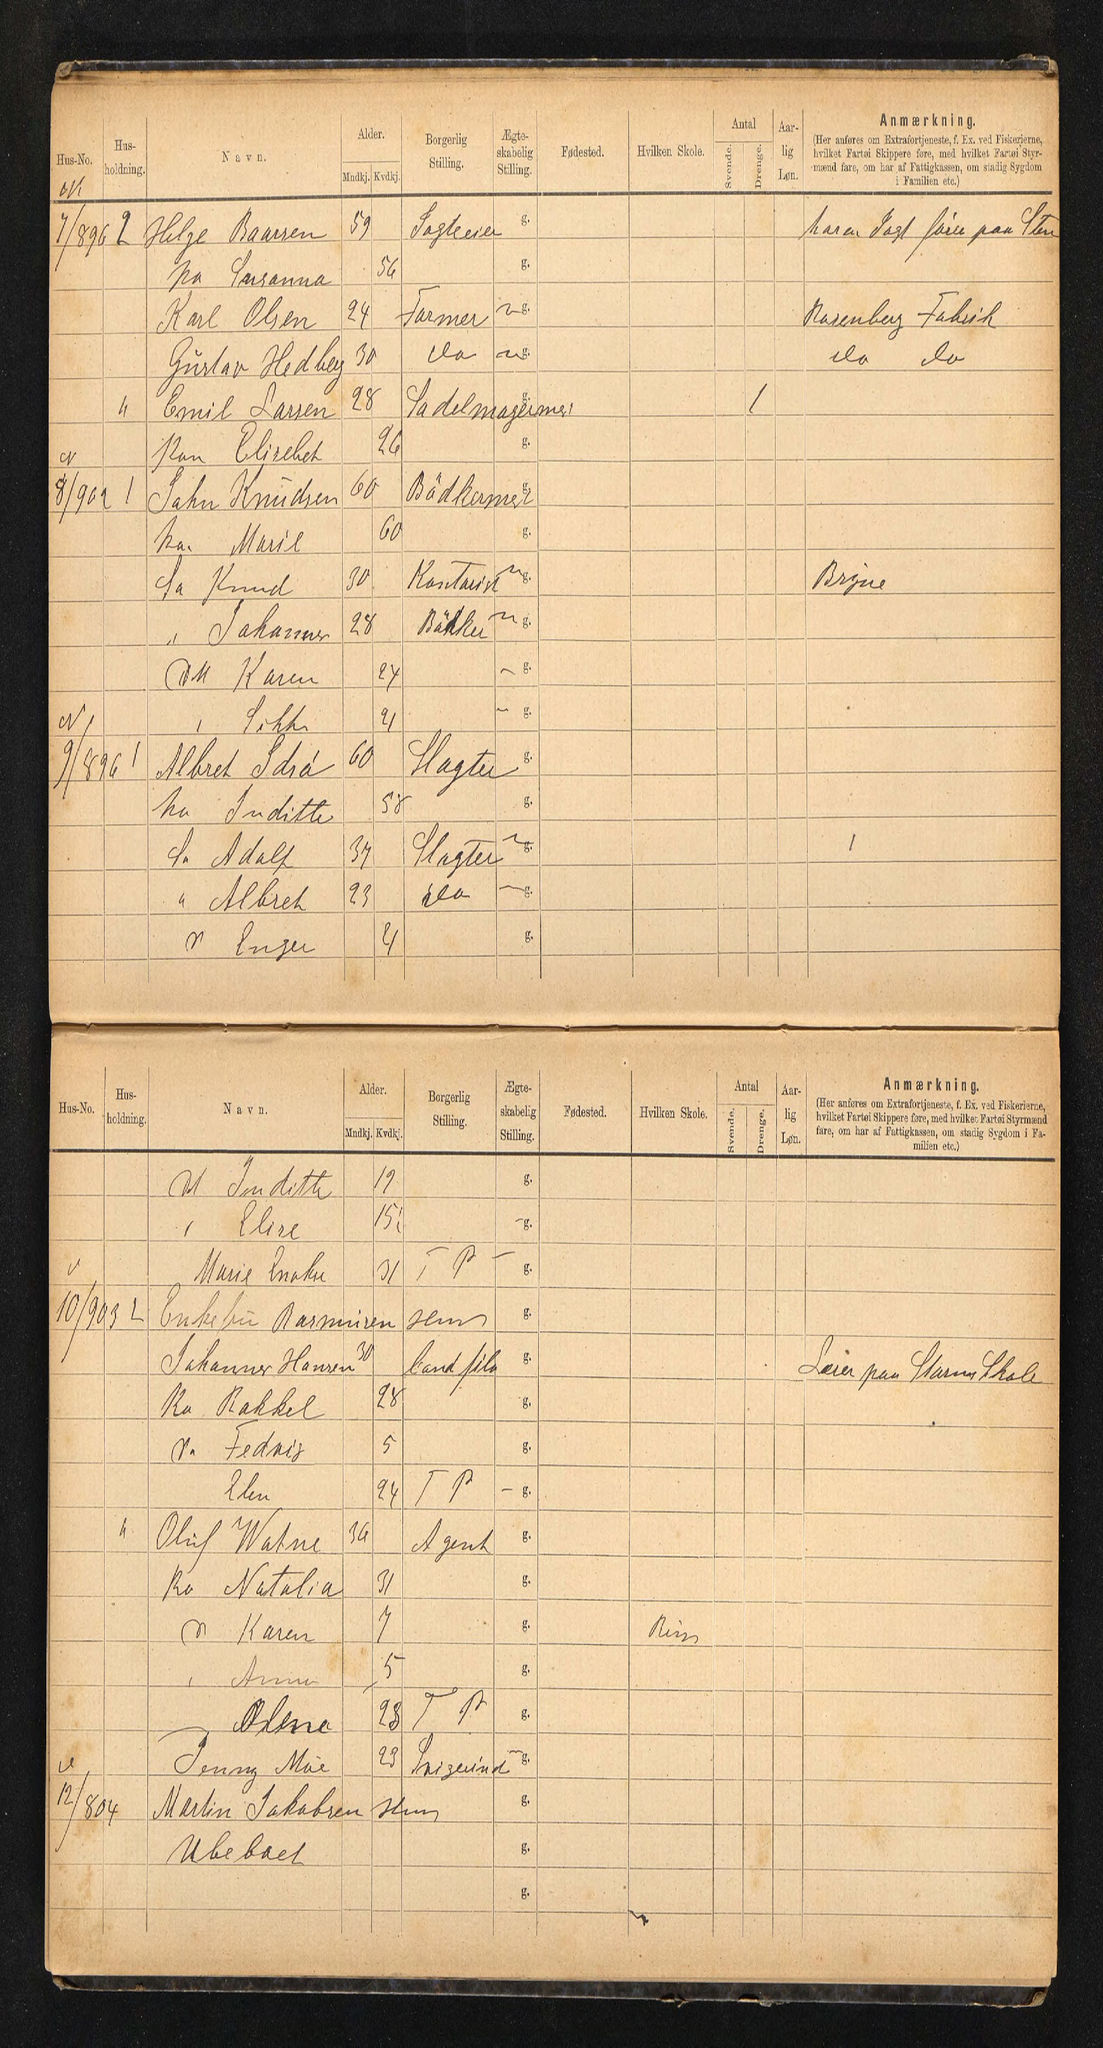 Hus-No. Hus-holdning. Navn. Alder. Mndkj. Kvdkj. Borgerlig Stilling. Ægte-skabelig Stilling. Fødested. Hvilken Skole. Antal Svende. Drenge. Aar-lig Løn. Anmærkning.
(Her anføres om Extrafortjeneste, f. Ex. ved Fiskerierne, hvilket Fartøi Skippere føre, med hvilket Fartøi Styrmænd fare, om har af Fattigkassen, om stadig Sygdom i Familien etc.)
7/896 2 Helge Baarsen 59 g. Jagt paa
ka Susanna 56 g.
Karl Olsen 24 Former ~ g. Rosenberg Fabrik
Gustav Hedberg 30 do ~ g. do do
" Emil Larsen 28 Sadelmagermes g. 1
kon Elisebet 26 g.
8/902 1 John Knudsen 60 Bödkermest g.
ka. Marie 60 g.
Sø Knud 30 Kontorist ~ g. Bryne
" Johannes 28 Bödker ~ g.
Karen 24 ~ g.
" 21 ~ g.
9/896 1 Albret Idsö 60 Slagter g.
ka Inditte 58 g.
Sø Adolf 37 Slagter ~ g. 1
" Albret 23 do ~ g.
D Enger 21 g.
Hus-No. Hus-holdning. Navn. Alder. Mndkj. Kvdkj. Borgerlig Stilling. Ægte-skabelig Stilling. Fødested. Hvilken Skole. Antal Svende. Drenge. Aar-lig Løn. Anmærkning.
(Her anføres om Extrafortjeneste, f. Ex. ved Fiskerierne, hvilket Fartøi Skippere føre, med hvilket Fartøi Styrmænd fare, om har af Fattigkassen, om stadig Sygdom i Familien etc.)
Inditte 19 g.
" Elise 15 g.
Marie 31 T P g.
10/903 2 Enkefru Rasmusen g.
Johannes Hansen 30 Cand filo g. Lærer paa Skole
ka Rakkel 28 g.
D. 5 g.
Elen 24 T P g.
" Oluf Watne 36 Agent g.
ka Natalia 31 g.
D Karen 7 g.
" Anna 5 g.
Olene 28 T P g.
Jenny Moe 23 Svigerind g.
12/804 Martin Jakobsen g.
Ubeboet g.
g.